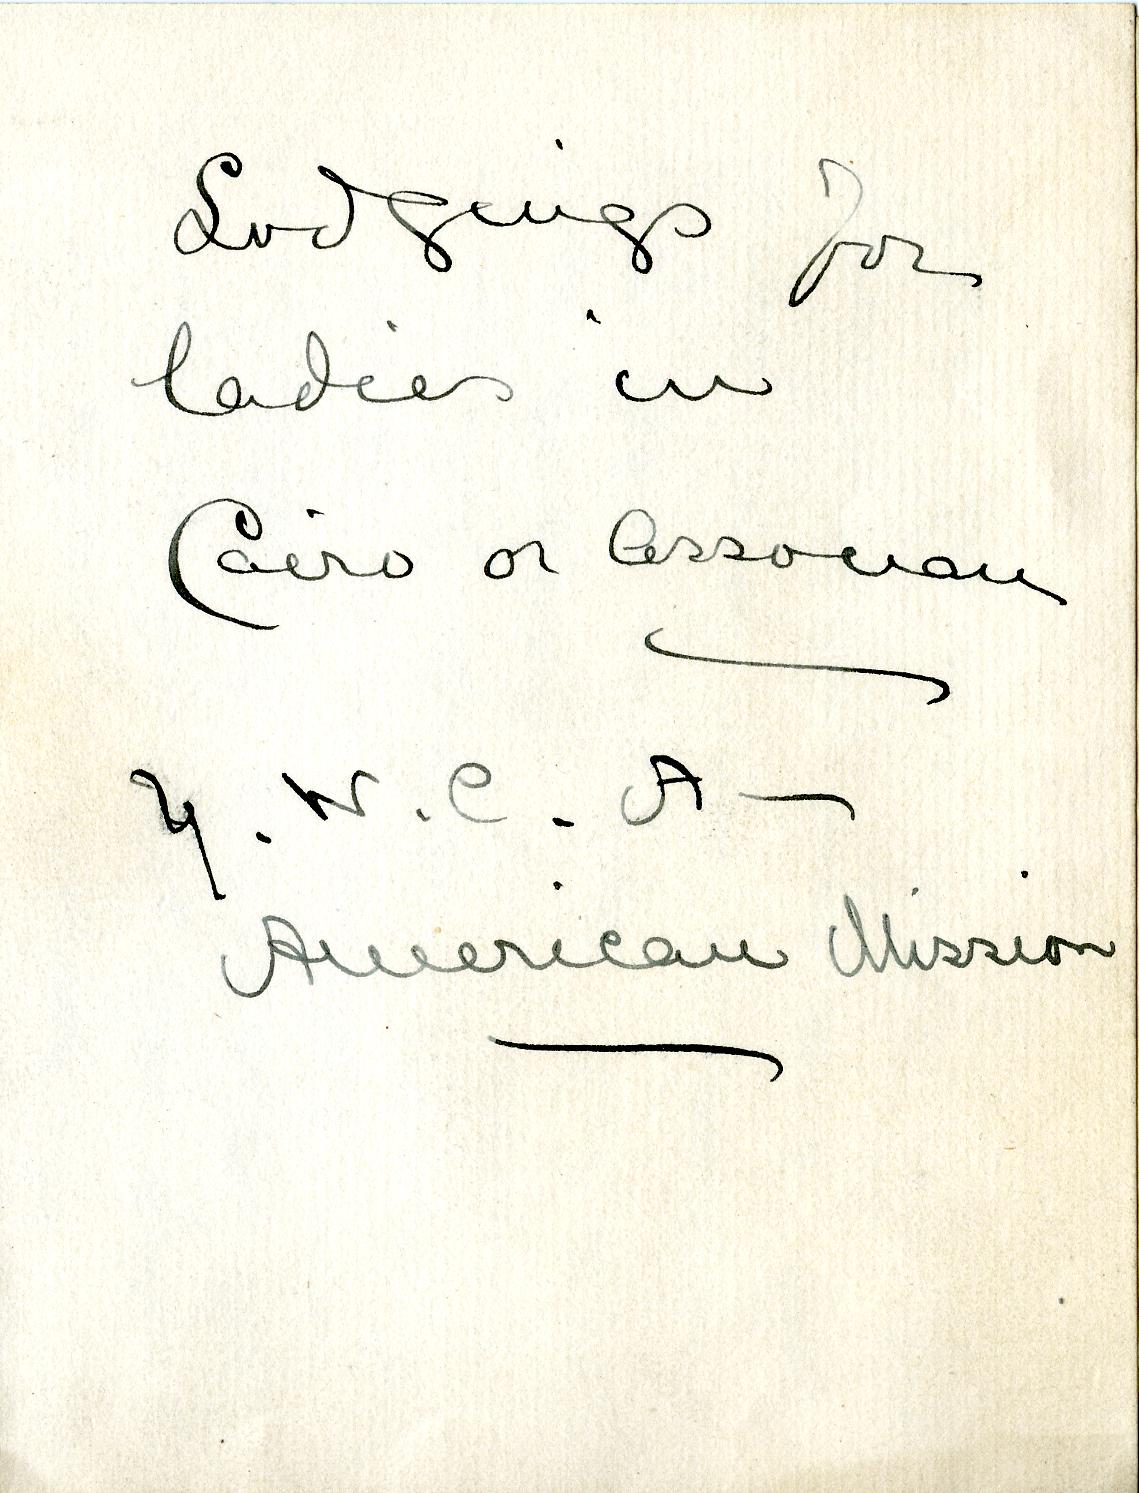 Lodgings for
ladies in
Cairo or Assouan
Y. W. C. A —
American Mission